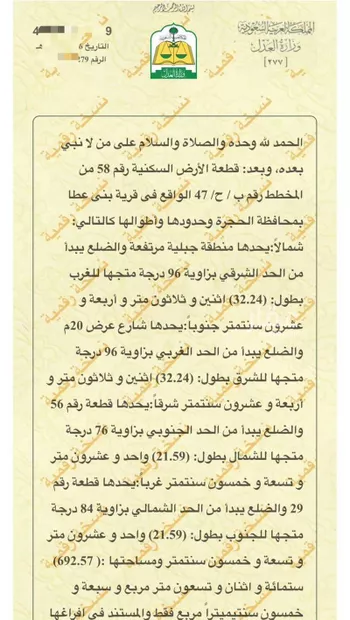 بسم الله الرحمن الرحيم
المملكة العربية السعودية
وزارة العدل
[ ٢٧٧ ]
وزارة العدل
4 9
التاريخ 6 هـ
الرقم 279
الحمد لله وحده والصلاة والسلام على من لا نبي
بعده، وبعد: قطعة الأرض السكنية رقم 58 من
المخطط رقم ب / ح/ 47 الواقع فى قرية بنى عطا
بمحافظة الحجرة وحدودها وأطوالها كالتالي:
شمالاً:يحدها منطقة جبلية مرتفعة والضلع يبدأ
من الحد الشرقي بزاوية 96 درجة متجها للغرب
بطول: (32.24) اثنين و ثلاثون متر و أربعة و
عشرون سنتمتر جنوباً:يحدها شارع عرض 20م
والضلع يبدأ من الحد الغربي بزاوية 96 درجة
متجها للشرق بطول: (32.24) اثنين و ثلاثون متر و
أربعة و عشرون سنتمتر شرقاً:يحدها قطعة رقم 56
والضلع يبدأ من الحد الجنوبي بزاوية 76 درجة
متجها للشمال بطول: (21.59) واحد و عشرون متر
و تسعة و خمسون سنتمتر غرباً:يحدها قطعة رقم
29 والضلع يبدأ من الحد الشمالي بزاوية 84 درجة
متجها للجنوب بطول: (21.59) واحد و عشرون متر
و تسعة و خمسون سنتمتر ومساحتها :( 692.57)
ستمائة و اثنان و تسعون متر مربع و سبعة و
خمسون سنتيميتراً مربع فقط والمستند فى افراغها
نسخة رقمية